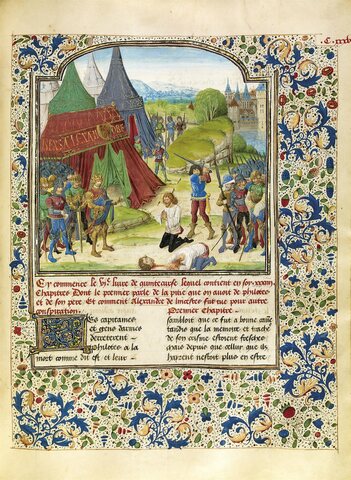 C. xxxb
REX ALEXANDRE
Cy commence le vije livre de quintecurse lequel contient en soy xxxiiij
Chapitres Dont le premier parle de la pitie que on avoit de philotes
et de son pere. Et comment Alexandre de lincestes fut tue pour autre
conspiration. Premier Chapitre.
es capitaines
et gens darmes
decreterent
philotes a la
mort comme dit est et leur
sambloit que
tandis que la memoire et trache
de son crisme estoient fresches
mais depuis que cellui que ilz
hayent nestoit plus en estre